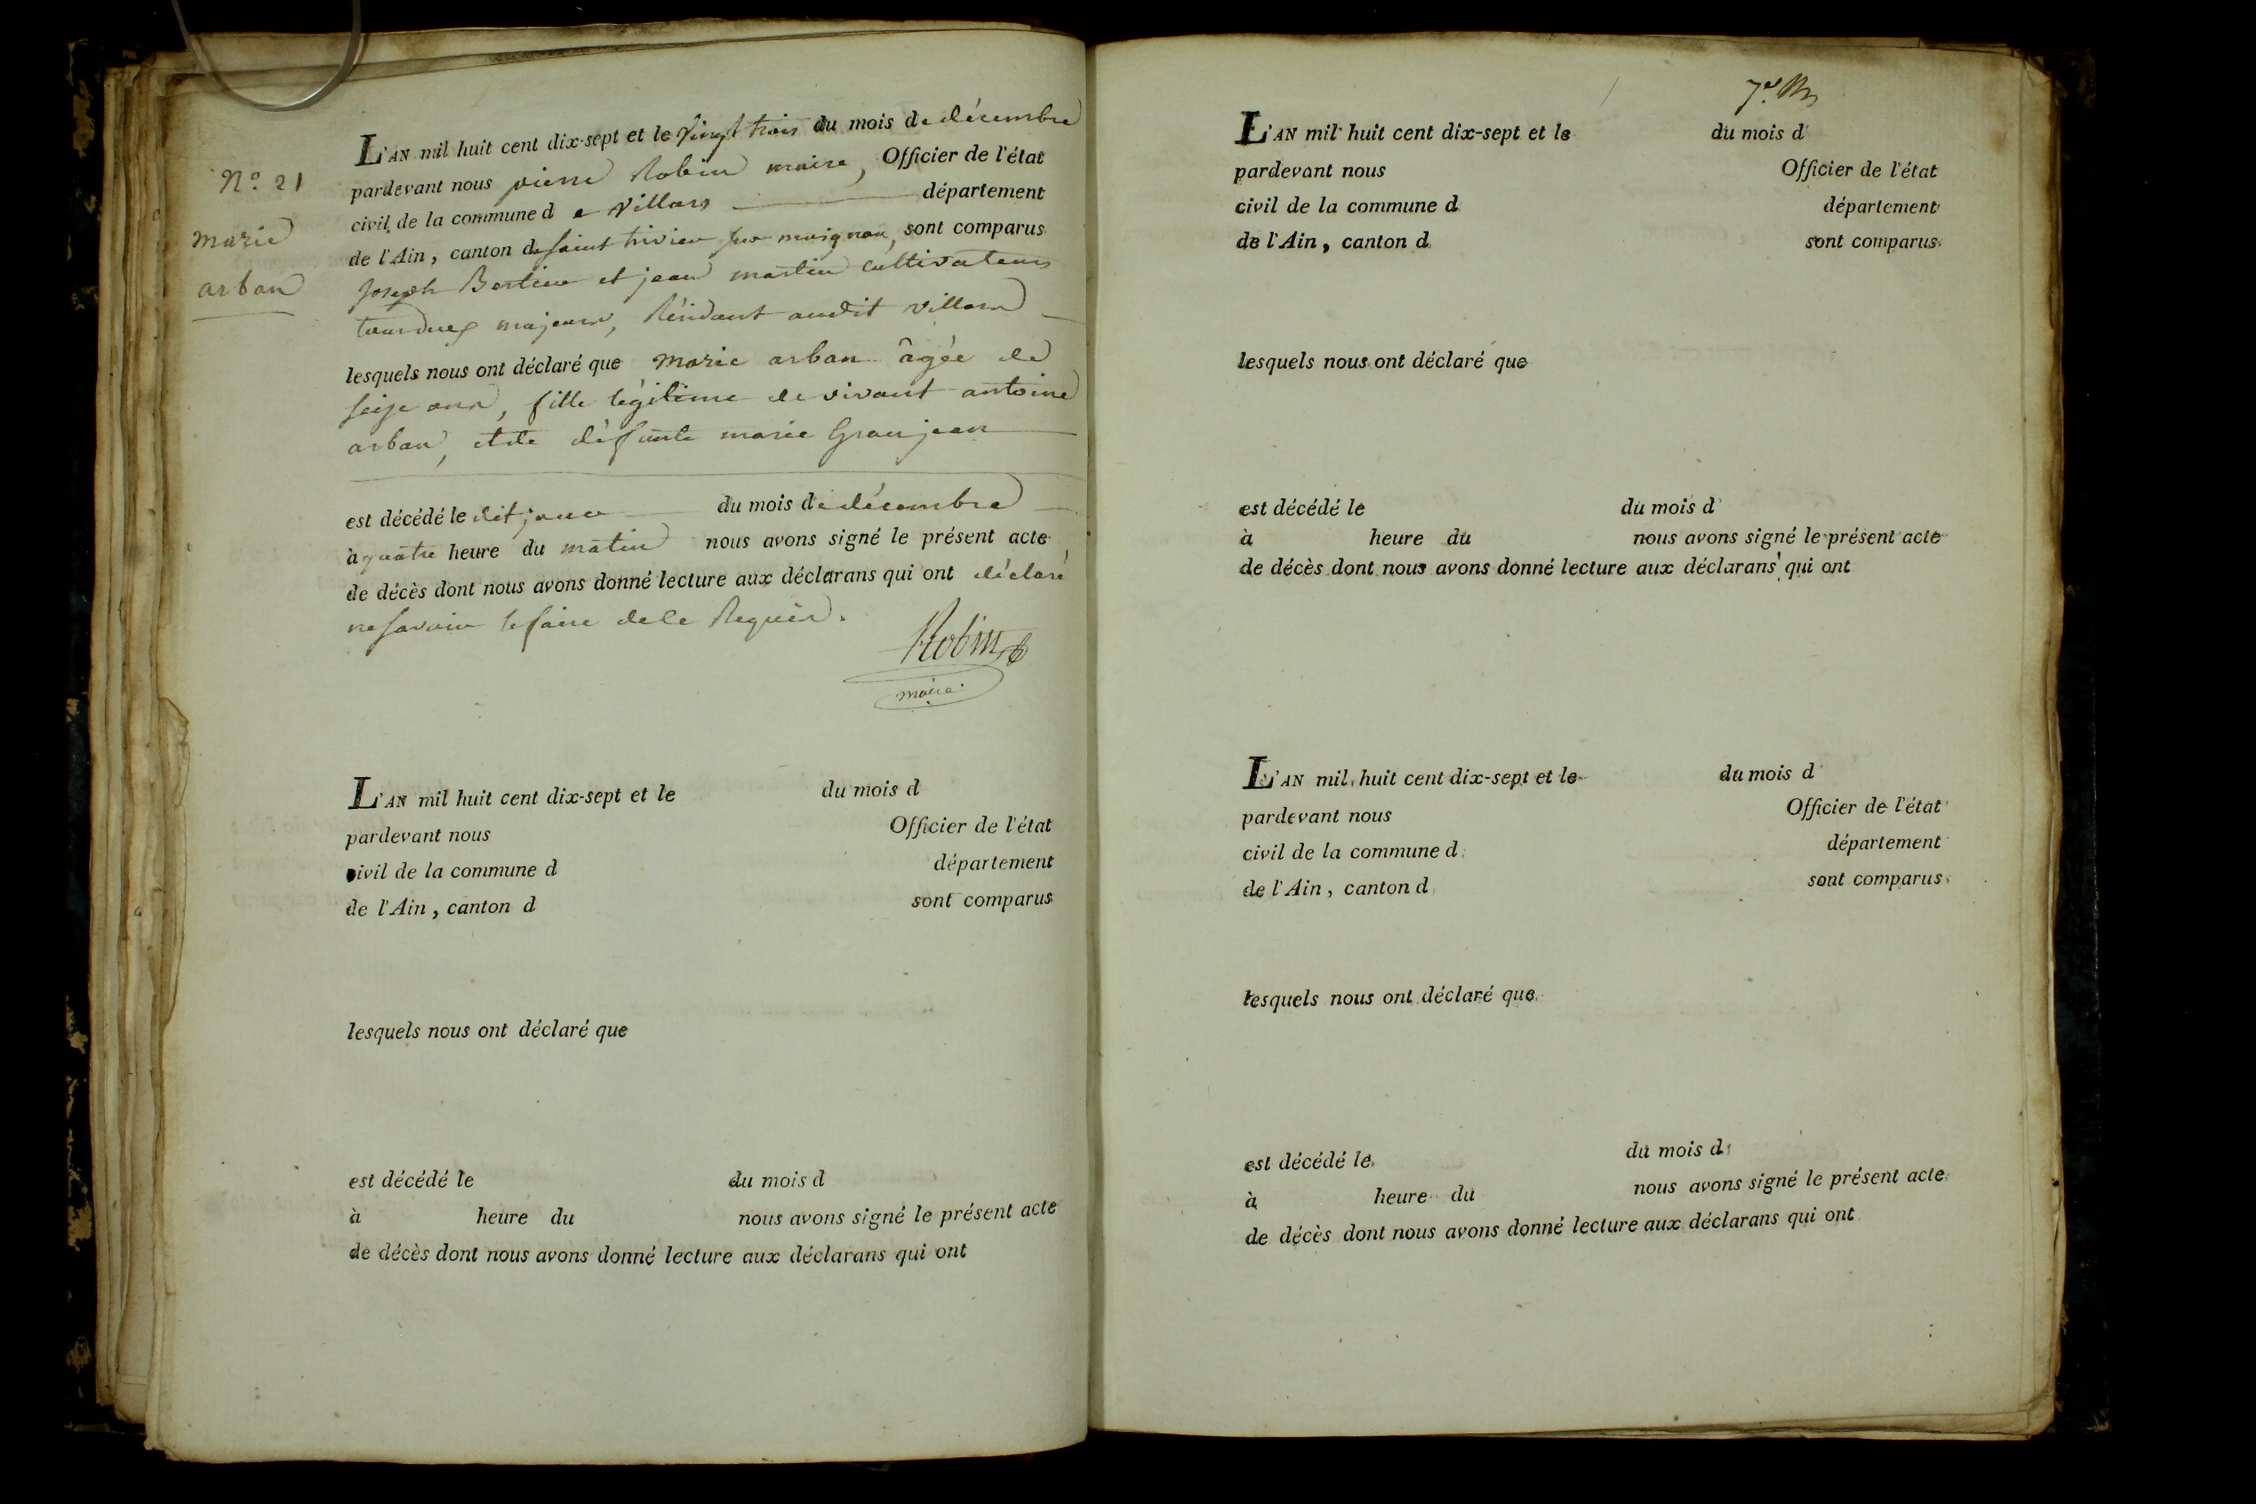 N.° 21
marie
arban
L'AN mil huit cent dix-sept et le vingt trois du mois de décembre
pardevant nous pierre Robin maire, Officier de l'état
civil de la commune de villars département
de l'Ain, canton de saint trivier sur moignan, sont comparus
joseph Bertieu et jean martin cultivateurs
tousdeux majeurs, Résidant audit villars
lesquels nous ont déclaré que marie arban âgée de
seize ans, fille légitime de vivant antoine
arban, et de défunte marie Granjean
est décédé le dit jour du mois de décembre
à quatre heure du matin nous avons signé le présent acte
de décès dont nous avons donné lecture aux déclarans qui ont déclaré
ne savoir le faire de ce Requis.
Robin
maire.
L'AN mil huit cent dix-sept et le du mois d
pardevant nous Officier de l'état
civil de la commune d département
de l'Ain, canton d sont comparus
lesquels nous ont déclaré que
est décédé le du mois d
à heure du nous avons signé le présent acte
de décès dont nous avons donné lecture aux déclarans qui ont
L'AN mil huit cent dix-sept et le du mois d
pardevant nous Officier de l'état
civil de la commune d département
de l'Ain, canton d sont comparus
lesquels nous ont déclaré que
est décédé le du mois d
à heure du nous avons signé le présent acte
de décès dont nous avons donné lecture aux déclarans qui ont
L'AN mil huit cent dix-sept et le du mois d
pardevant nous Officier de l'état
civil de la commune d département
de l'Ain, canton d sont comparus
lesquels nous ont déclaré que
est décédé le du mois d
à heure du nous avons signé le présent acte
de décès dont nous avons donné lecture aux déclarans qui ont